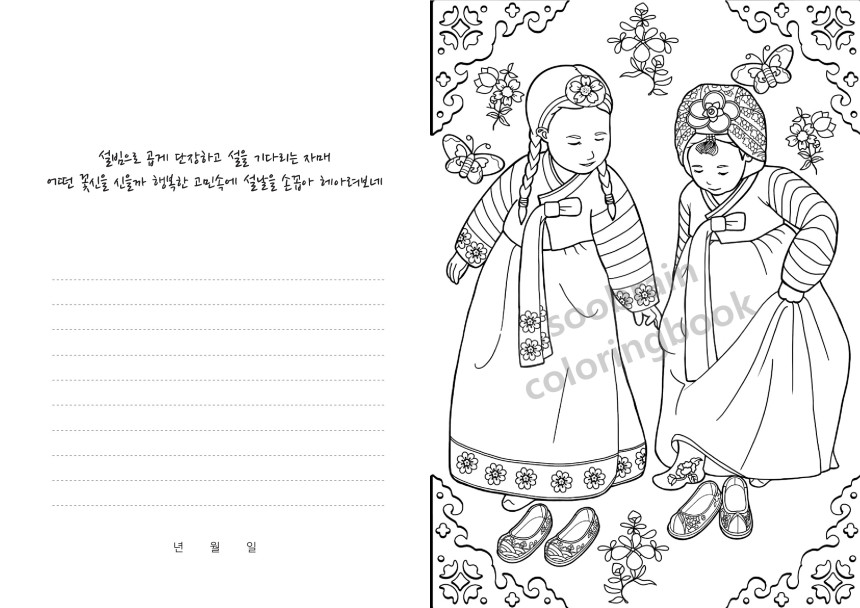 설빔으로 곱게 단장하고 설을 기다리는 자매
어떤 꽃신을 신을까 행복한 고민속에 설날을 손꼽아 헤아려보네
년 월 일
soobrain
coloringbook